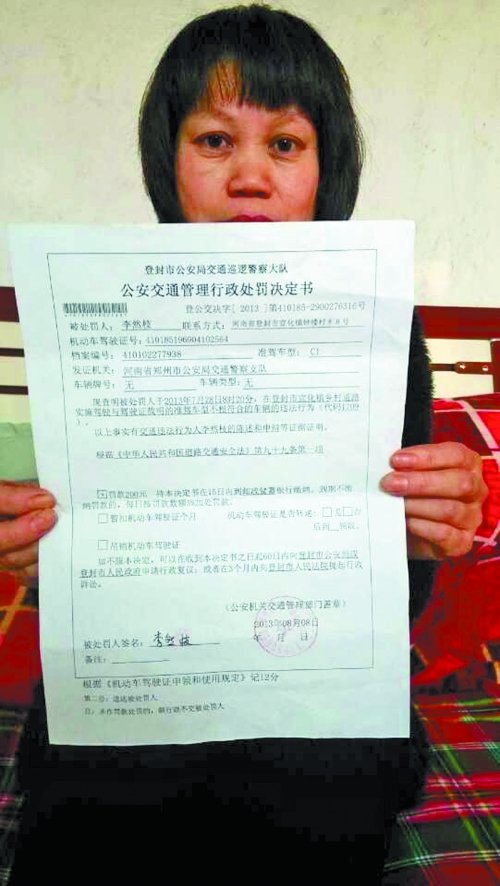 登封市公安局交通巡逻警察大队
公安交通管理行政处罚决定书
登公交决字 [ 2013 ] 第410185-2900276316号
被处罚人: 李然枝 联系方式: 河南省登封市宣化镇钟楼村
机动车驾驶证号: 410185196904102564
档案编号: 410102277938 准驾车型: C1
发证机关: 河南省郑州市公安局交通警察支队
车辆牌号: 无 车辆类型: 无
现查明被处罚人于2013年7月28日8时20分, 在登封市宣化镇乡村道路
实施驾驶与驾驶证载明的准驾车型不相符合的车辆的违法行为 (代码1709)。
以上事实有交通违法行为人李然枝的陈述和申辩等证据证明。
根据《中华人民共和国道路交通安全法》第九十九条第一项
罚款200元 持本决定书在15日内到邮政储蓄银行缴纳。到期不缴
纳罚款的, 每日按罚款数额的3%加处罚款。
暂扣机动车驾驶证个月 机动车驾驶证是否转递: 是 否
后到 领取。
吊销机动车驾驶证
如不服本决定, 可以在收到本决定书之日起60日内向登封市公安局或
登封市人民政府申请行政复议; 或者在3个月内向登封市人民法院提起行政
诉讼。
(公安机关交通管理部门盖章)
2013年08月08日
年 月 日
被处罚人签名: 李然枝
备注:
根据《机动车驾驶证申领和使用规定》记12分
第二份: 送达被处罚人
注: 并作罚款处罚的, 银行不交被处罚人